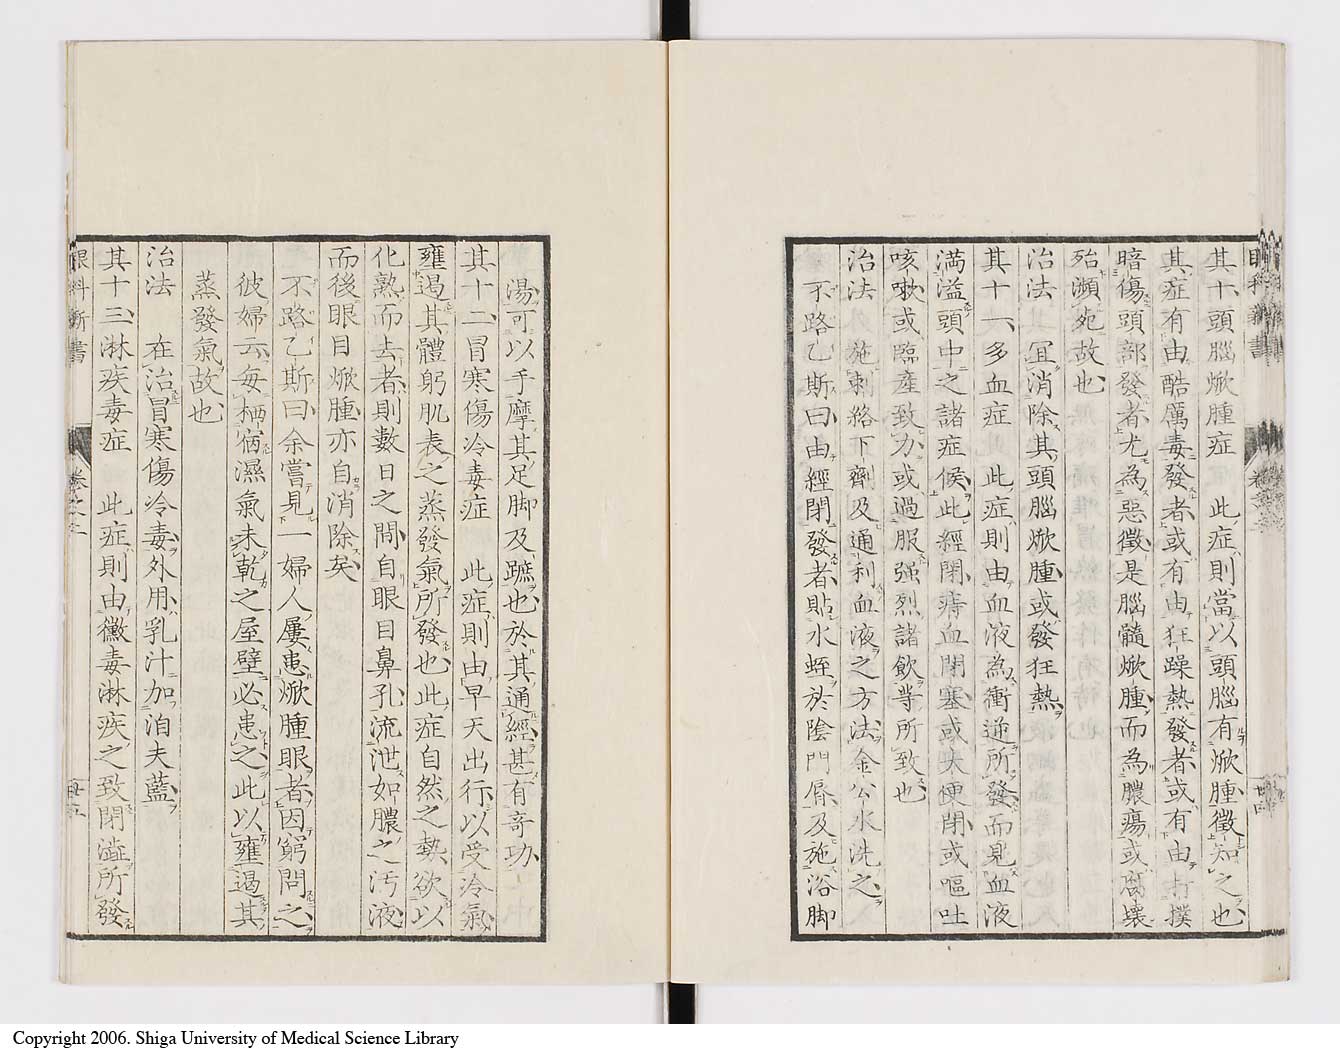 其十、頭腦焮腫症 此症則當以頭腦有焮腫徵知之也
其症有由酷厲毒發者或有由狂躁熱發者或有由打撲
暗傷頭部發者尤為惡徵是腦髓焮腫而為膿瘍或腐壞
殆瀕死故也
治法 宜消除其頭腦焮腫或發狂熱
其十一、多血症 此症則由血液為衝逆所發而見血液
滿溢頭中之諸症候此經閉痔血閉塞或大便閉或嘔吐
咳嗽或臨產致力或過服强烈諸飲等所致也
治法 施刺絡下劑及通利血液之方法金公水洗之
不路乙斯曰由經閉發者貼水蛭於陰門唇及施浴脚
湯可以手摩其足脚及蹠也於其通經甚有奇功
其十二、冒寒傷冷毒症 此症則由早天出行以受冷氣
壅遏其體躬肌表之蒸發氣所發也此症自然之勢欲以
化熟而去者則數日之間自眼目鼻孔流泄如膿之汚液
而後眼目焮腫亦自消除矣
不路乙斯曰余嘗見一婦人屢患焮腫眼者因窮問之
彼婦云每栖宿濕氣未乾之屋壁必患之此以壅遏其
蒸發氣故也
治法 在治冒寒傷冷毒外用乳汁加洎夫藍
其十三、淋疾毒症 此症則由黴毒淋疾之致閉澁所發
眼科新書
卷之二
Copyright 2006. Shiga University of Medical Science Library